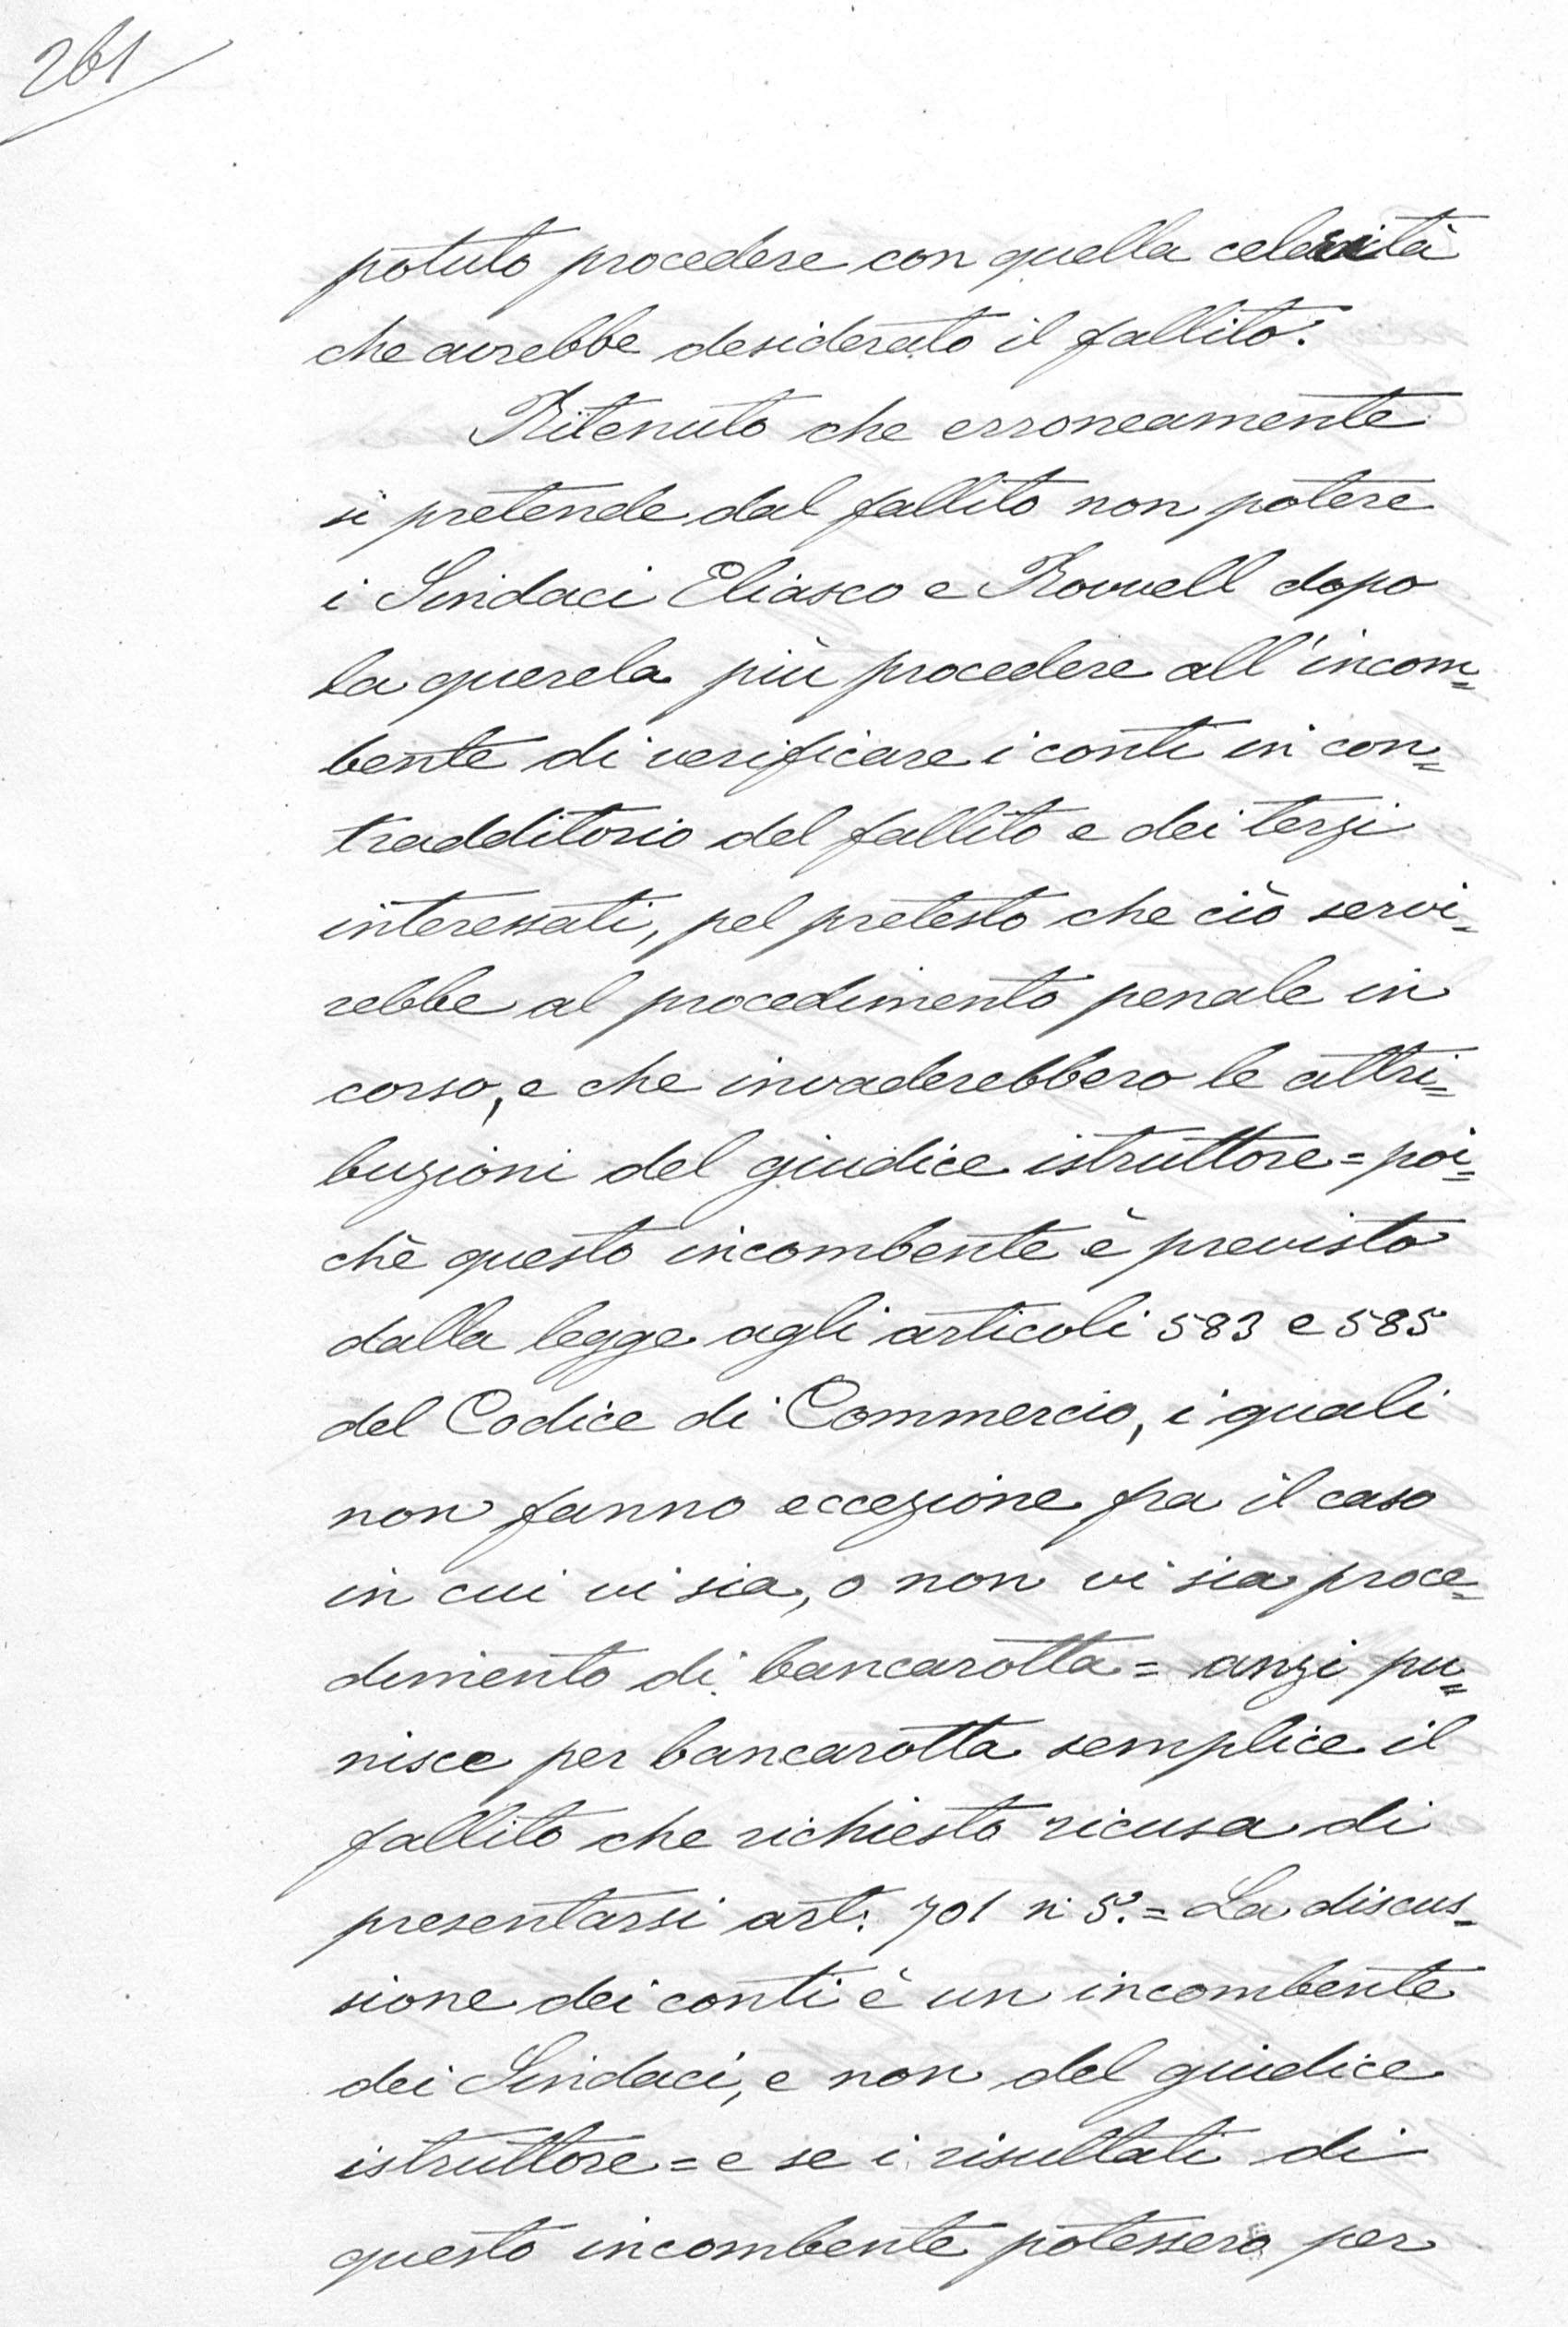 261
potuto procedere con quella celerità
che avrebbe desiderato il fallito.
Ritenuto che erroneamente
si pretende dal fallito non potere
i Sindaci Eliasco e Rowell dopo
la querela più procedere all'incom=
bente di verificare i conti in con=
tradditorio del fallito e dei terzi
interessati, pel pretesto che ciò servi=
rebbe al procedimento penale in
corso, e che invaderebbero le attri=
buzioni del giudice istruttore = poi=
chè questo incombente è previsto
dalla legge agli articoli 583 e 585
del Codice di Commercio, i quali
non fanno eccezione fra il caso
in cui vi sia, o non vi sia proce=
dimento di bancarotta = anzi pu=
nisce per bancarotta semplice il
fallito che richiesto ricusa di
presentarsi art: 701 n 5º. = La discus=
sione dei conti è un incombente
dei Sindaci, e non del giudice
istruttore = e se i risultati di
questo incombente potessero per